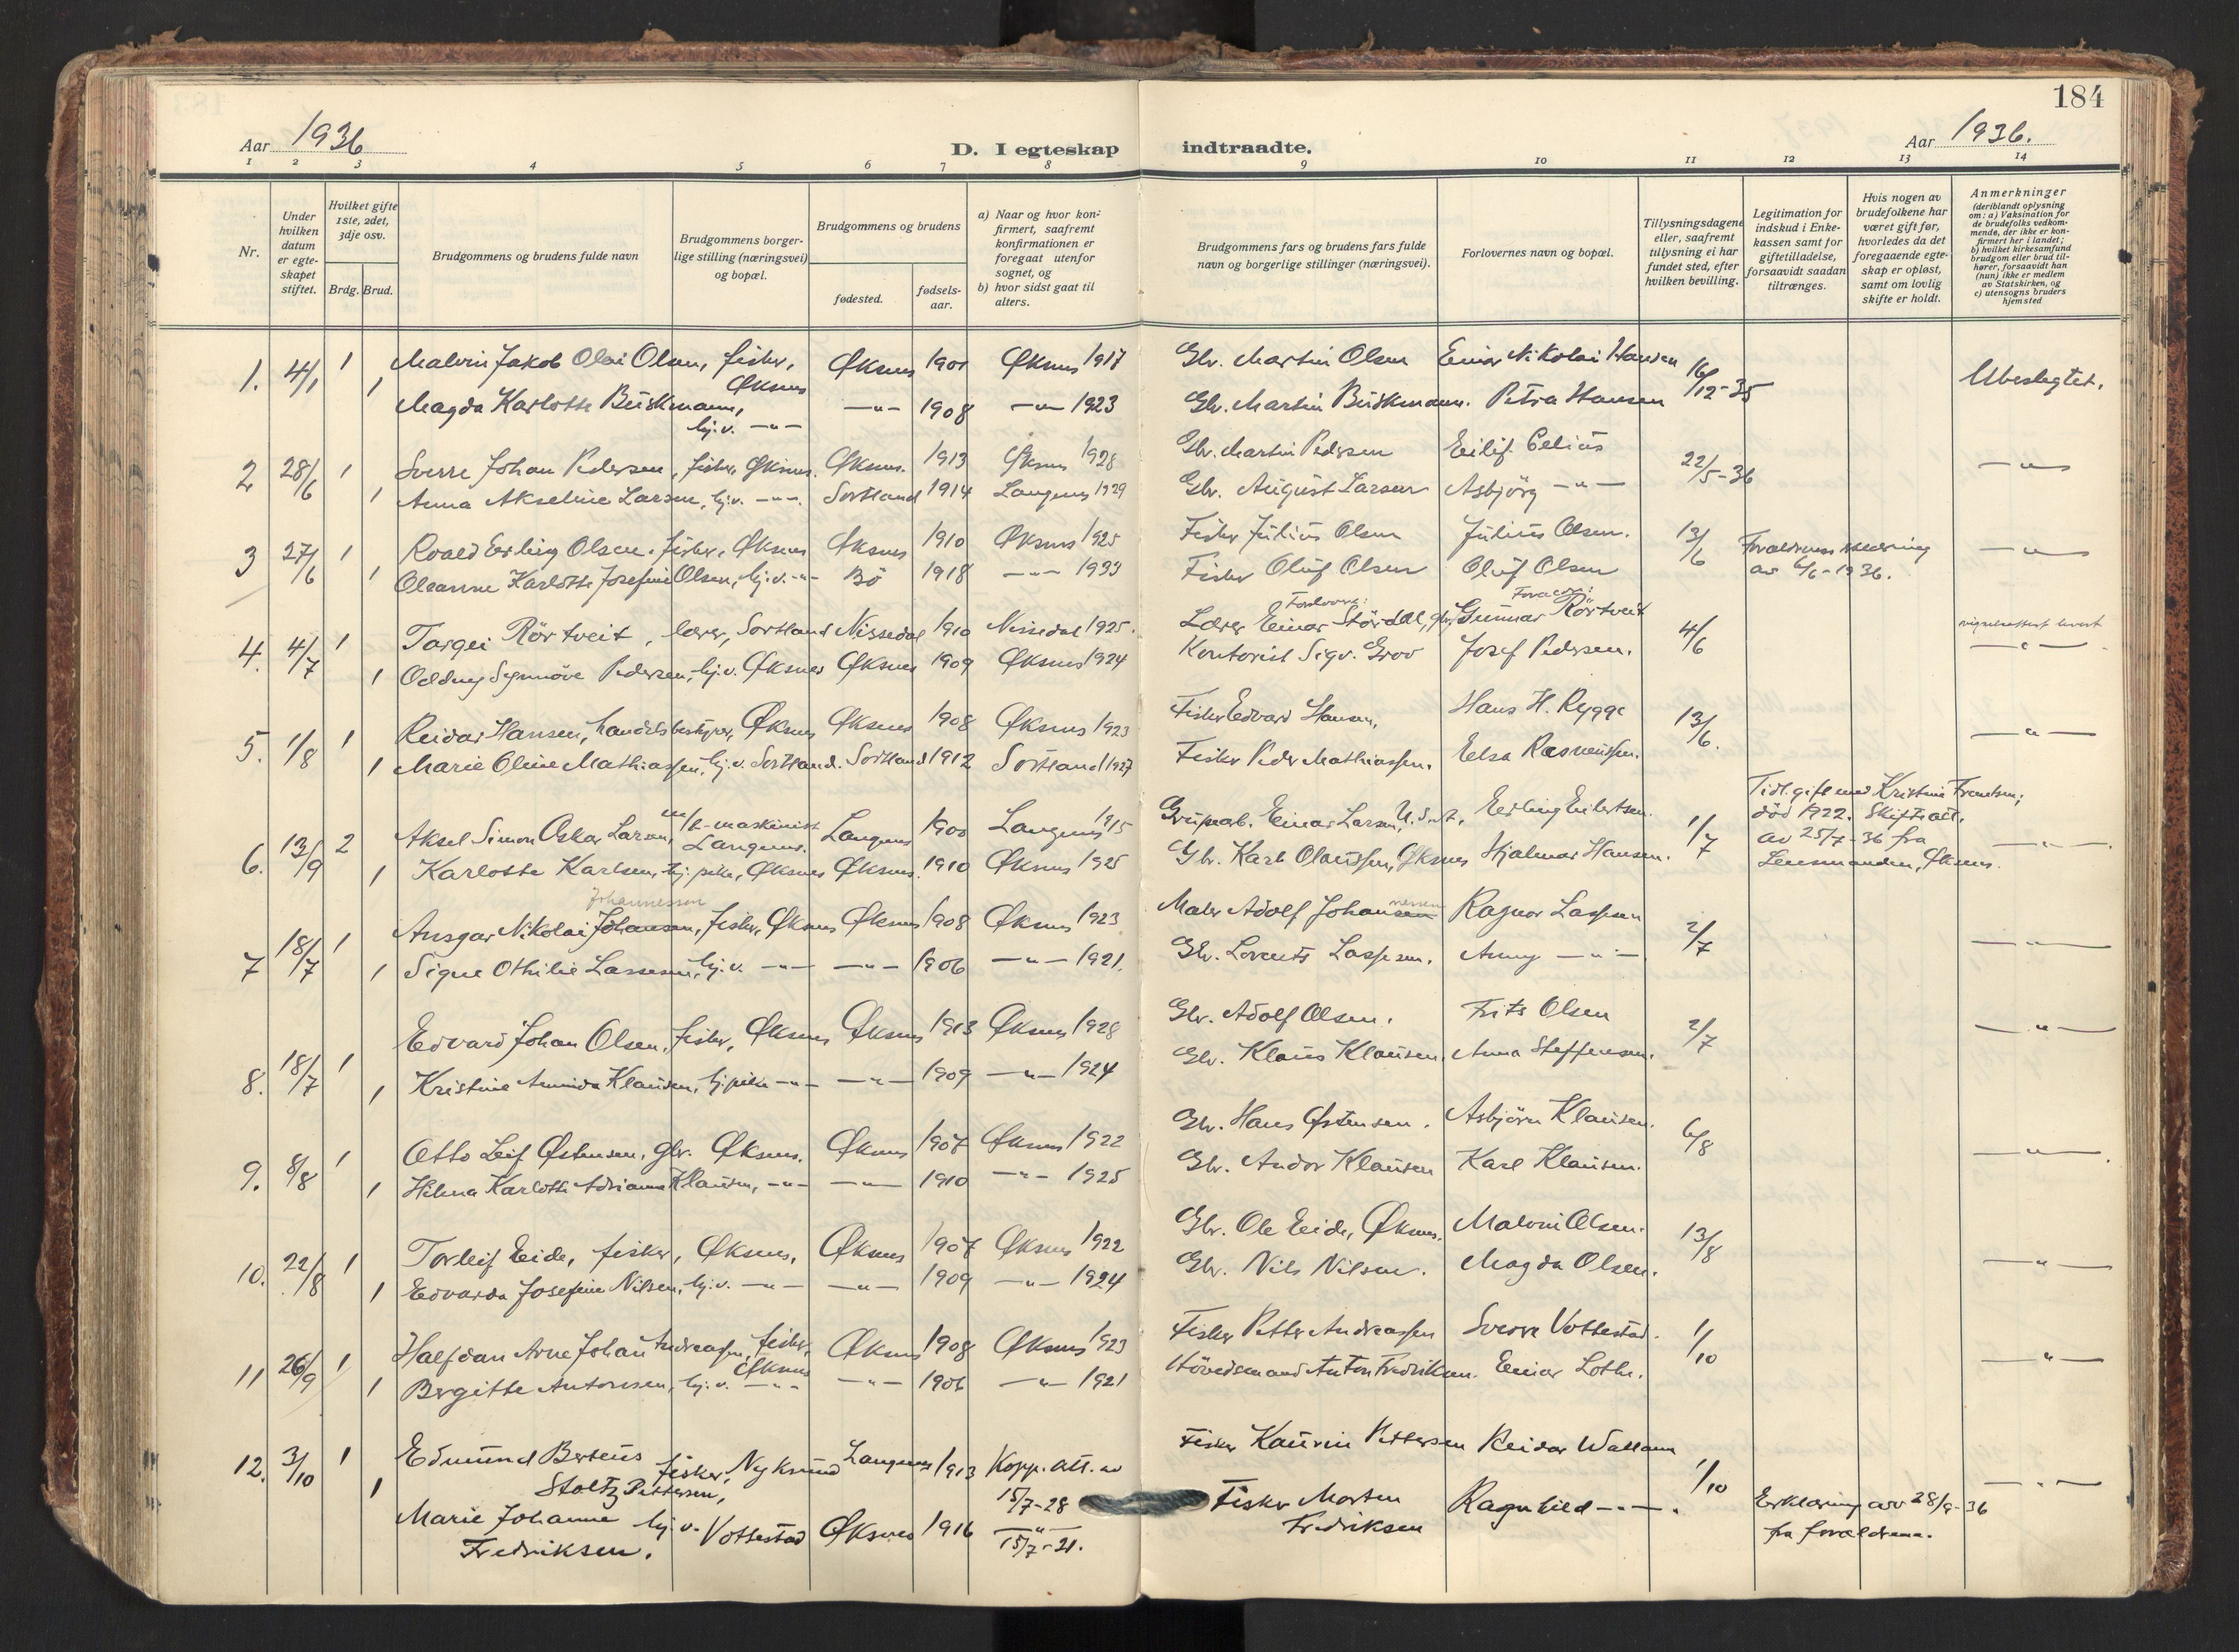 184
Aar 1936
D. I egteskap indtraadte.
Aar 1936.
1 2 3 4 5 6 7 8 9 10 11 12 13 14
Nr.
Under hvilken datum er egteskapet stiftet.
Hvilket gifte 1ste, 2det, 3dje osv.
Brdg. Brud.
Brudgommens og brudens fulde navn
Brudgommens borgerlige stilling (næringsvei) og bopæl.
Brudgommens og brudens
fødested.
fødselsaar.
a) Naar og hvor konfirmert, saafremt konfirmationen er foregaat utenfor sognet, og
b) hvor sidst gaat til alters.
Brudgommens fars og brudens fars fulde navn og borgerlige stillinger (næringsvei).
Forlovernes navn og bopæl.
Tillysningsdagene eller, saafremt tillysning ei har fundet sted, efter hvilken bevilling.
Legitimation for indskud i Enkekassen samt for giftetilladelse, forsaavidt saadan tiltrænges.
Hvis nogen av brudefolkene har været gift før, hvorledes da det foregaaende egteskap er opløst, samt om lovlig skifte er holdt.
Anmerkninger
(deriblandt oplysning om: a) Vaksination for de brudefolks vedkommende, der ikke er konfirmert her i landet; b) hvilket kirkesamfund brudgom eller brud tilhører, forsaavidt han (hun) ikke er medlem av Statskirken, og c) utensogns bruders hjemsted
1. 4/1 1 Malvin Jakob Olai Olsen, fisker, Øksnes Øksnes Øksnes 1917 Gbr. Martin Olsen Einar Nikolai Hansen 16/12-35 Ubeslegtet.
1 Magda Karlotte Brinkmann, hj.v. —"— —"— 1908 —"— 1923 Gbr. Martin Brinkmann. Petra Hansen
2 28/6 1 Sverre Johan Pedersen, fisker, Øksnes. Øksnes. 1913 Øksnes 1928 Gbr. Martin Pedersen Eilif Celius 22/5-36 —"—
1 Anna Akseline Larsen, hj.v. —"—. Sortland 1914 Langenes 1929 Gbr. August Larsen Asbjörg —"—
3 27/6 1 Roald Erling Olsen, fisker, Øksnes Øksnes 1910 Øksnes 1925 Fisker Julius Olsen Julius Olsen. 13/6 Forældrenes erklæring av 6/6-1936. —"—
1 Oleanne Karlotte Josefine Olsen, hj.v. —"— Bö 1918 —"— 1933 Fisker Oluf Olsen Oluf Olsen
4. 4/7 1 Targei Rörtveit, lærer, Sortland Nissedal 1910 Nissedal 1925. Forlovere: Lærer Einar Stördal, Gunnar Rörtveit 4/6 —"—
1 Oddny Synnöve Pedersen, hj.v. Øksnes Øksnes 1909 Øksnes 1924 Kontorist Sigv. Grov Josef Pedersen.
5. 1/8 1 Reidar Hansen, handelsbestyrer, Øksnes Øksnes 1908 Øksnes 1923 Fisker Edvard Hansen, Hans H. Rygge 13/6. —"—
1 Marie Oline Mathiassen, hj.v. Sortland. Sortland 1912 Sortland 1927 Fisker Peder Mathiassen. Elsa Rasmussen.
6. 13/9 2 Aksel Simon Oskar Larsen, m/k-maskinist Langenes. Langenes 1900 Langenes 1915 Grubearb. Einar Larsen, U.S.A. Erling Eilertsen. 1/7 Tidl. gift med Kristine Frantsen, död 1922. Skifteatt. av 25/7-36 fra Lensmanden, Øksnes. —"—
1 Karlotte Karlsen, hj.pike, Øksnes Øksnes. 1910 Øksnes 1925 Gbr. Karl Olaussen, Øksnes Hjalmar Hansen.
Johannessen
7 18/7 1 Ansgar Nikolai Johansen, fisker, Øksnes Øksnes 1908 Øksnes 1923 Maler Adolf Johansen nessen Ragnar Lassesen 2/7 —"—
1 Signe Othilie Lassesen, hj.v. —"— —"— 1906 —"— 1921. Gbr. Lorents Lassesen. Anny —"—
8. 18/7 1 Edvard Johan Olsen, fisker, Øksnes Øksnes 1913 Øksnes 1928 Gbr. Adolf Olsen. Frits Olsen 2/7 —"—
1 Kristine Klausen, hj.pike —"— —"— 1909 —"— 1924 Gbr. Klaus Klausen. Anna Steffensen.
9. 8/8 1 Otto Leif Østensen, gbr. Øksnes. Øksnes 1907 Øksnes 1922 Gbr. Hans Østensen. Asbjörn Klausen. 6/8 —"—
1 Hilma Karlotte Adriane Klausen, —"— —"— 1910 —"— 1925 Gbr. Andor Klausen Karl Klausen.
10. 22/8 1 Torleif Eide, fisker, Øksnes, Øksnes 1907 Øksnes 1922 Gbr. Ole Eide, Øksnes. Malvin Olsen. 13/8 —"—
1 Edvarda Josefine Nilsen, hj.v. —"— —"— 1909 —"— 1924 Gbr. Nils Nilsen. Magda Olsen.
11 26/9 1 Halfdan Arne Johan Andreassen, fisker, Øksnes Øksnes 1908 Øksnes 1923 Fisker Petter Andreassen Sverre Vottestad. 1/10 —"—
1 Bergitte Antonsen, hj.v. —"— —"— 1906 —"— 1921 Hövedsmand Anton Fredriksen. Einar Lothe.
12. 3/10 1 Edmund Berteus Stoltz Pettersen, fisker, Nyksund Langenes 1913 Kopp.att. av 15/7-28 Fisker Kaurin Pettersen Reidar 1/10 —"—
1 Marie Johanne Fredriksen. hj.v. Vottestad Øksnes 1916 —"— 15/7-21. Fisker Morten Fredriksen Ragnhild —"—. Erklæring av 28/9-36 fra forældrene.